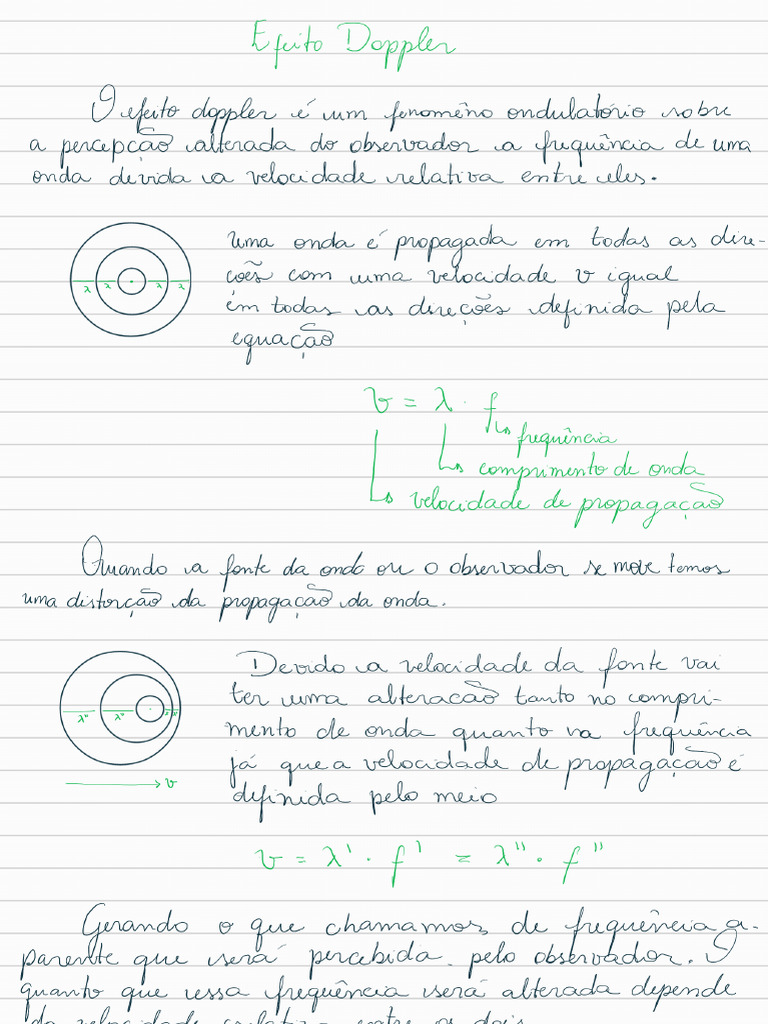 Efeito Doppler
O efeito doppler é um fenomêno ondulatório sobre
a percepção alterada do observador a frequência de uma
onda devida a velocidade relativa entre eles.
uma onda é propagada em todas as dire-
ções com uma velocidade v igual
em todas as direções definida pela
equação
λ λ λ λ
v = λ · f
↳ frequência
↳ comprimento de onda
↳ velocidade de propagação
Quando a fonte da onda ou o observador se move temos
uma distorção da propagação da onda.
Devido a velocidade da fonte vai
ter uma alteracão tanto no compri-
mento de onda quanto na frequência
já que a velocidade de propagação é
definida pelo meio
λ" λ"
→ v
v = λ' · f' = λ" · f"
Gerando o que chamamos de frequência a-
parente que será percebida pelo observador. O
quanto que essa frequência será alterada depende
da velocidade relativa entre os dois